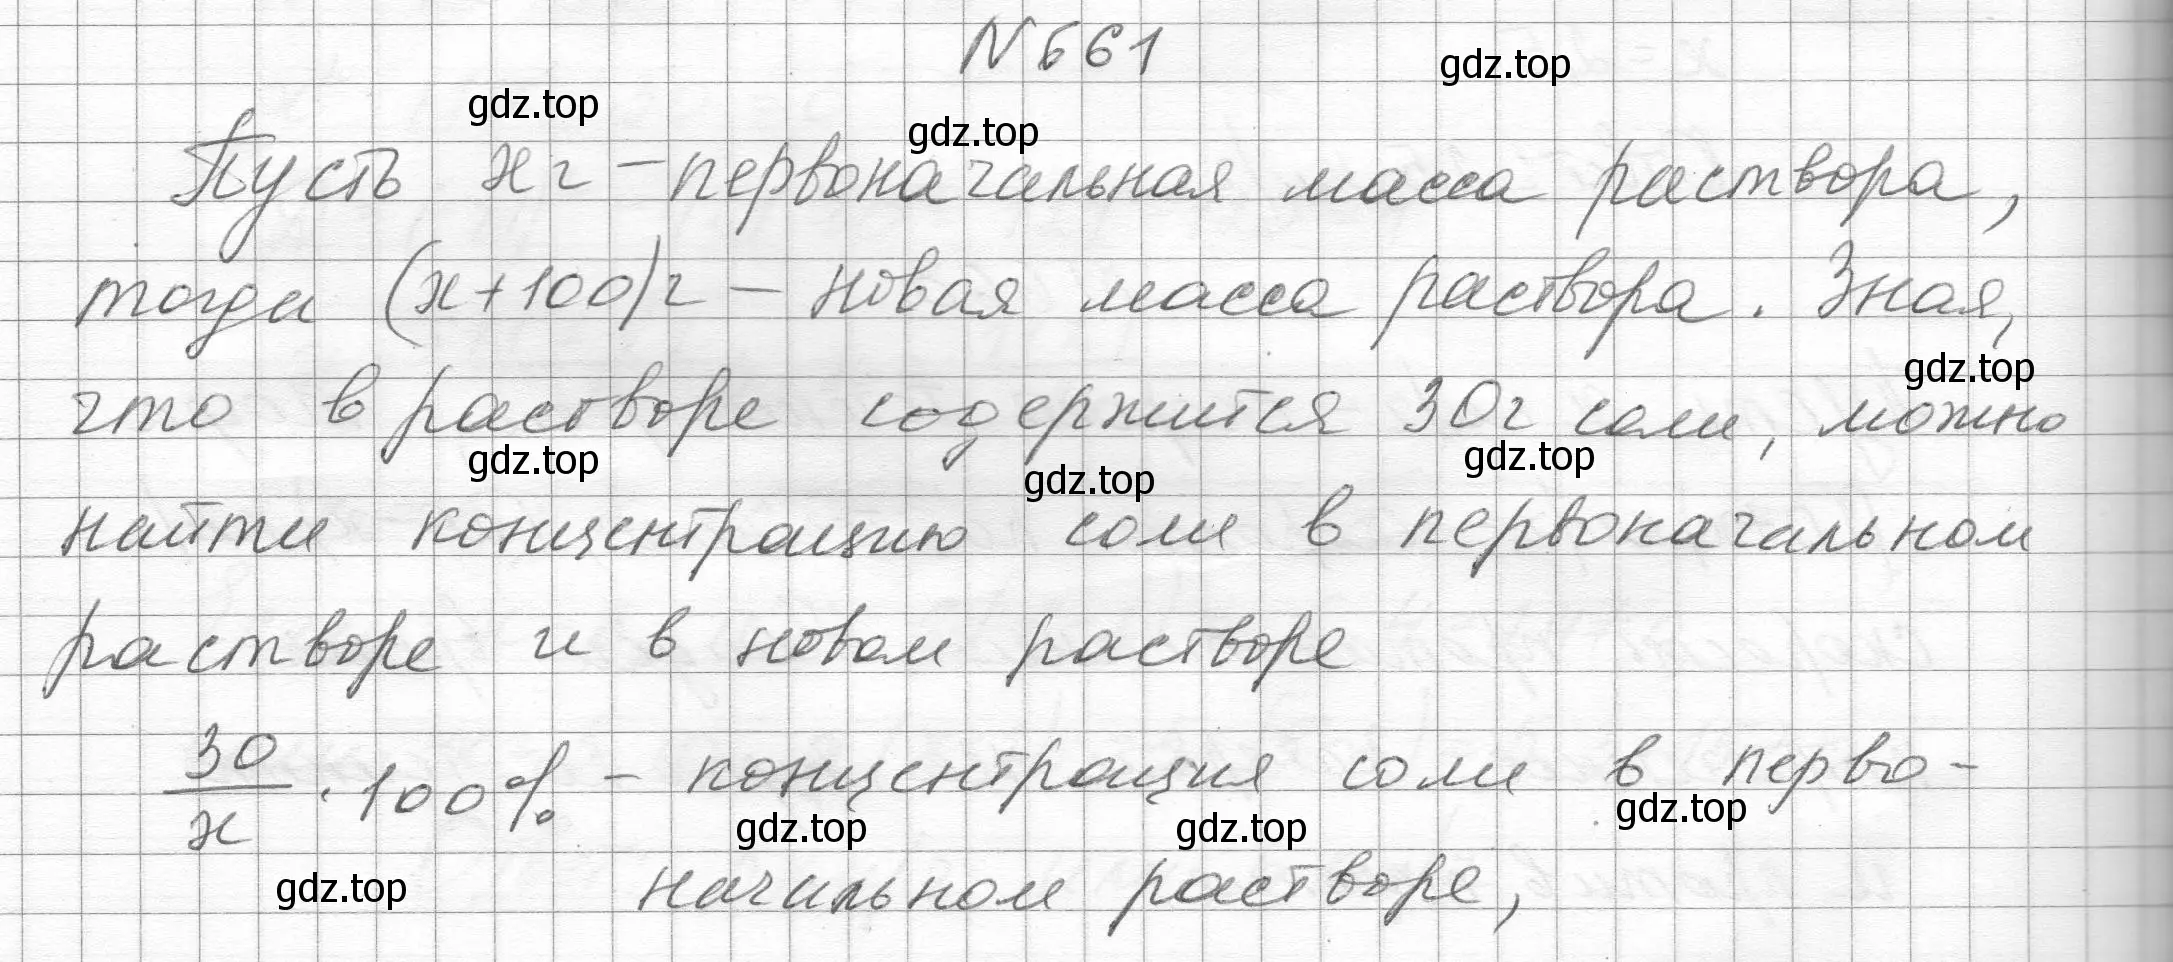 N 661
gdz.top
gdz.top
gdz.top
Пусть x г – первоначальная масса раствора,
тогда (x+100) г – новая масса раствора. Зная,
gdz.top
что в растворе содержится 30 г соли, можно
gdz.top
gdz.top
gdz.top
найти концентрацию соли в первоначальном
растворе и в новом растворе
30/x · 100% – концентрация соли в перво-
gdz.top
gdz.top
gdz.top
gdz.top
начальном растворе,